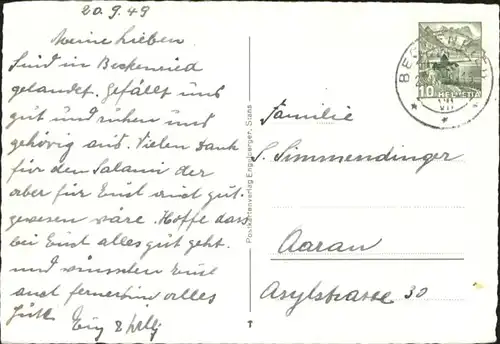 20.9.49
Meine Lieben
Sind in Beckenried
gelandet. Gefällt uns
gut und ruhen uns
gehörig aus. Vielen Dank
für den Salami der
aber für Euch auch gut
gewesen wäre. Hoffe dass
bei Euch alles gut geht.
und wünschen Euch
auch fernerhin alles
Gute.
Postkartenverlag Engelberger, Stans
10 HELVETIA
Familie
S. Simmendinger
Aarau
Asylstrasse 30